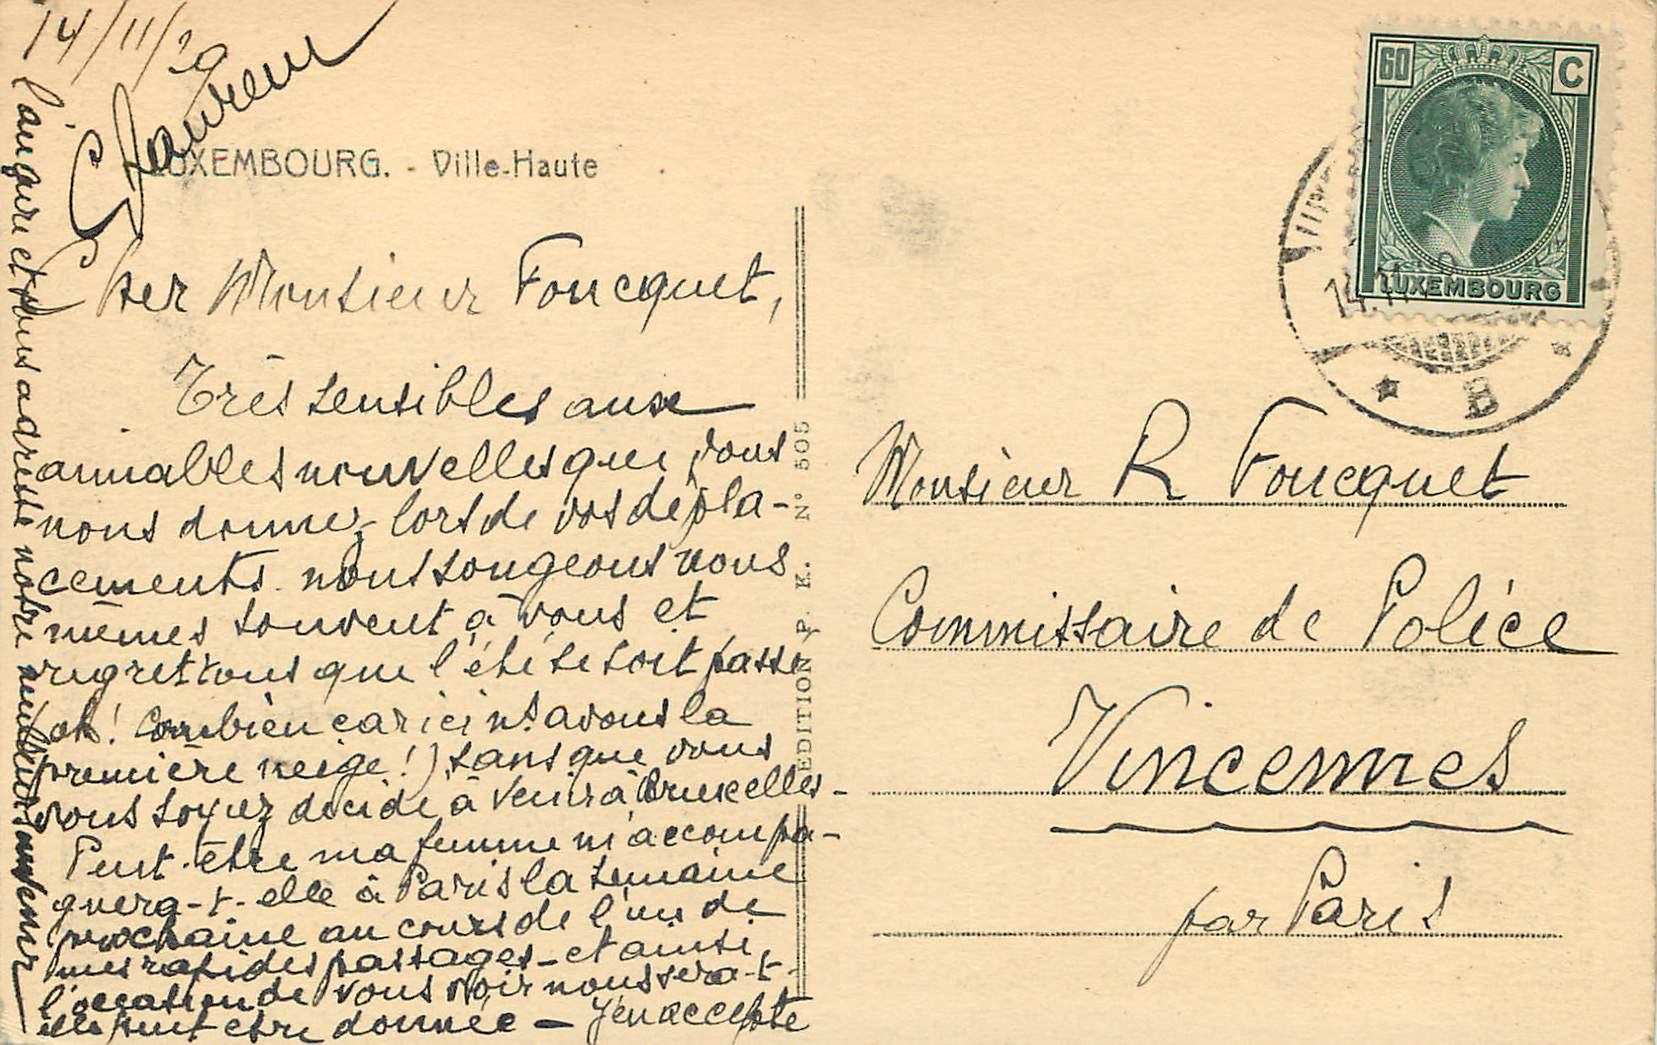 14/11/29
LUXEMBOURG. - Ville-Haute
Cher Monsieur Foucquet,
Très sensibles aux
aimables nouvelles que vous
nous donnez lors de vos dépla-
cements. nous songeons nous
mêmes souvent à vous et
regrettons que l'été se soit passé
(oh! Combien car ici ns avons la
première neige!) sans que vous
vous soyez décidé à venir à Bruxelles -
Peut-être ma femme m'accompa-
gnera-t-elle à Paris la semaine
prochaine au cours de l'un de
mes rapides passages - et ainsi
l'occasion de vous voir nous sera-t-
elle peut être donnée - J'en accepte
l'augure et vous adresse notre meilleur souvenir
EDITION P. K. N° 505
60 C
LUXEMBOURG
14.11
B
Monsieur R Foucquet
Commissaire de Police
Vincennes
par Paris